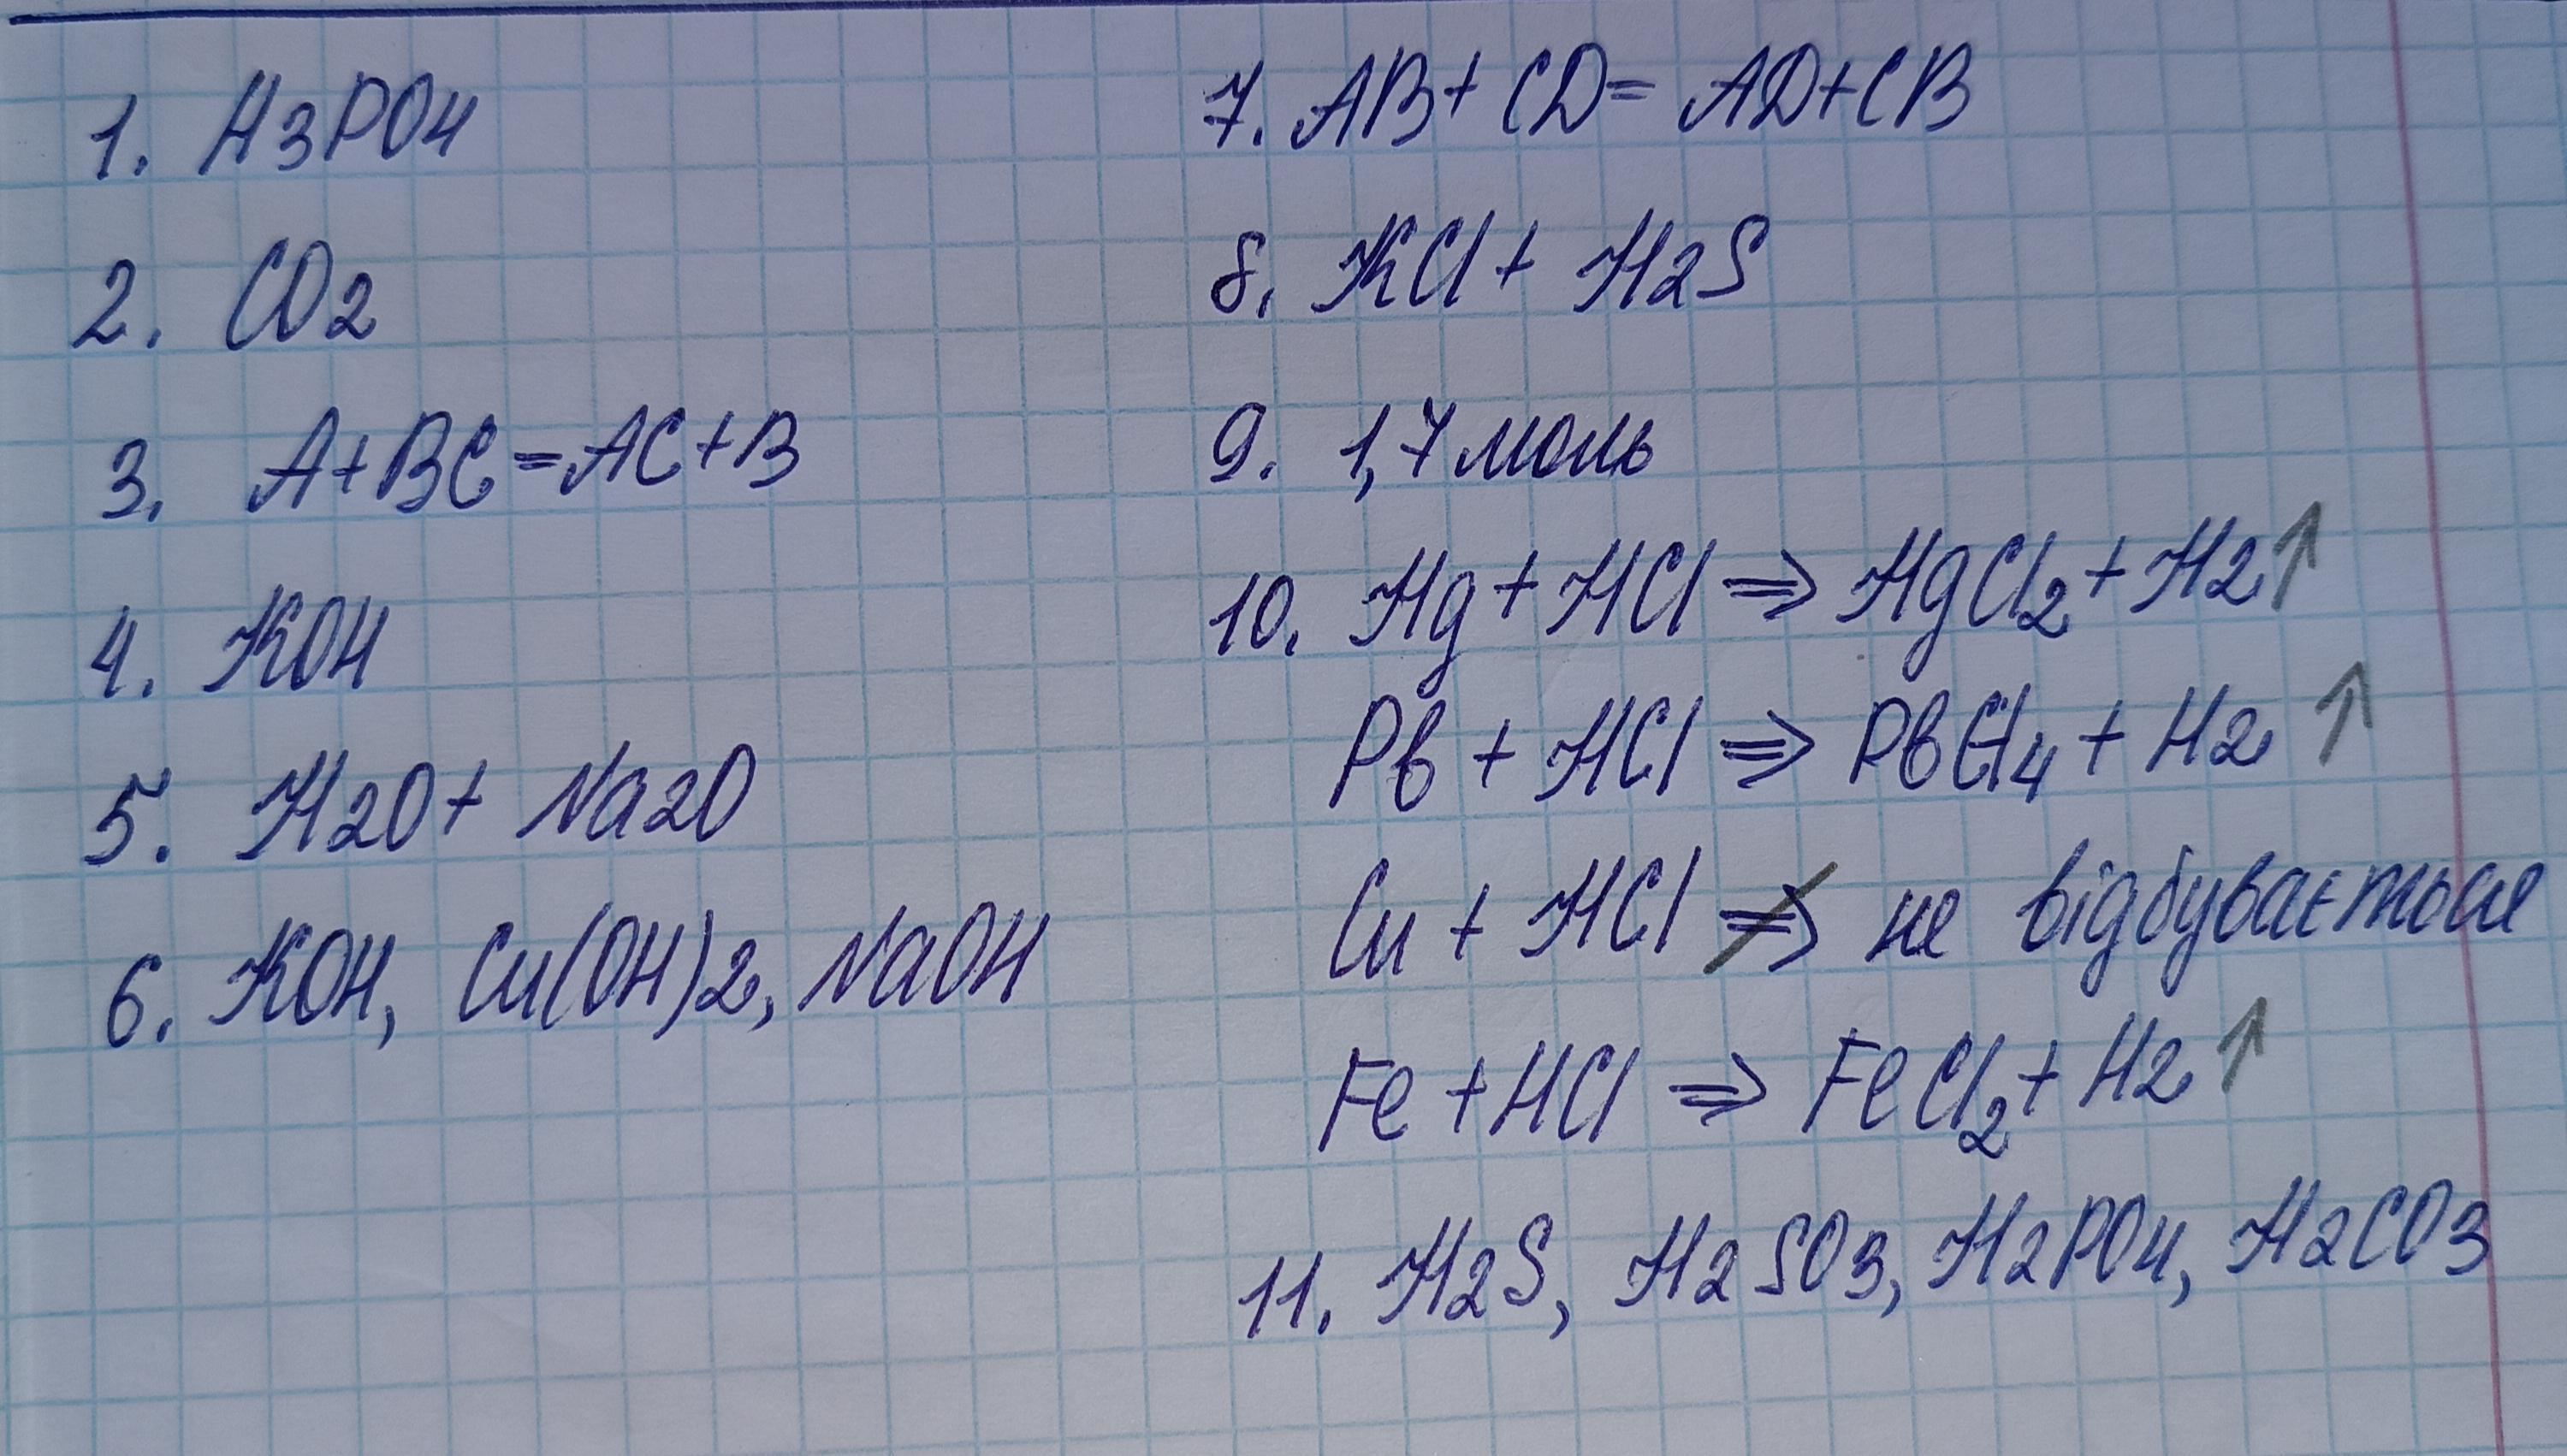 1. H3PO4
2. CO2
3. A+BC=AC+B
4. KOH
5. H2O+ Na2O
6. KOH, Cu(OH)2, NaOH
7. AB+ CD= AD+CB
8. KCl + H2S
9. 1,7 моль
10. Hg + HCl ⇒ HgCl2 + H2↑
Pb + HCl ⇒ PbCl4 + H2 ↑
Cu + HCl ⇏ не відбувається
Fe + HCl ⇒ FeCl2 + H2 ↑
11. H2S, H2SO3, H2PO4, H2CO3